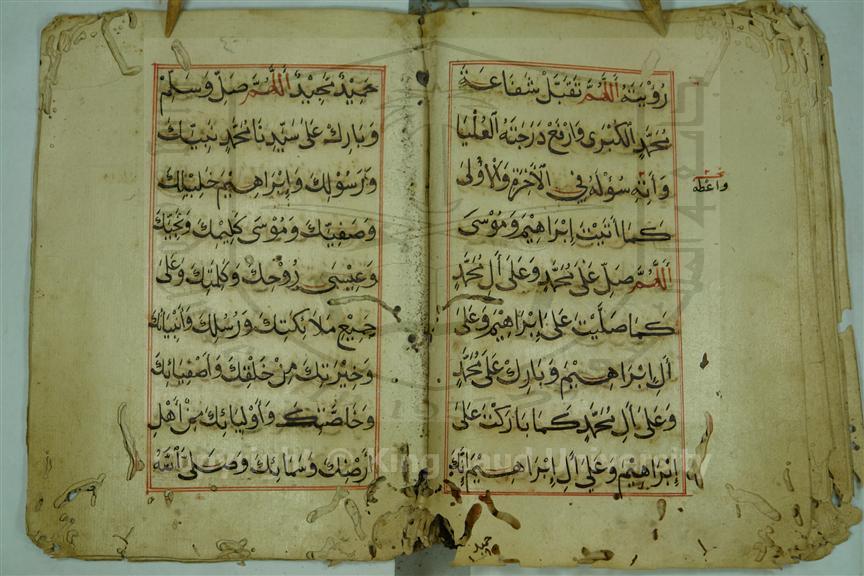 رُؤْيَتَهُ اَللّٰهُمَّ تَقَبَّلْ شَفَاعَةَ
مُحَمَّدٍ الْكُبْرٰى وَارْفَعْ دَرَجَتَهُ الْعُلْيَا
وَأْتِهِ سُؤْلَهُ فِي الْآخِرَةِ وَالْأُوْلٰى
كَمَا أتَيْتَ إِبْرَاهِيْمَ وَمُوْسٰى
اَللّٰهُمَّ صَلِّ عَلٰى مُحَمَّدٍ وَعَلٰى أٰلِ مُحَمَّدٍ
كَمَا صَلَّيْتَ عَلٰى إِبْرَاهِيْمَ وَعَلٰى
أٰلِ إِبْرَاهِيْمَ وَبَارِكْ عَلٰى مُحَمَّدٍ
وَعَلٰى أٰلِ مُحَمَّدٍ كَمَا بَارَكْتَ عَلٰى
إِبْرَاهِيْمَ وَعَلٰى أٰلِ إِبْرَاهِيْمَ إِنَّكَ
وأعطه
حميد
حَمِيْدٌ مَجِيْدٌ اَللّٰهُمَّ صَلِّ وَسَلِّمْ
وَبَارِكْ عَلٰى سَيِّدِنَا مُحَمَّدٍ نَبِيِّكَ
وَرَسُوْلِكَ وَإِبْرَاهِيْمَ خَلِيْلِكَ
وَصَفِيِّكَ وَمُوْسٰى كَلِيْمِكَ وَنَجِيِّكَ
وَعِيْسٰى رُوْحِكَ وَكَلِمَتِكَ وَعَلٰى
جَمِيْعِ مَلَائِكَتِكَ وَرُسُلِكَ وَأَنْبِيَائِكَ
وَخِيْرَتِكَ مِنْ خَلْقِكَ وَأَصْفِيَائِكَ
وَخَاصَّتِكَ وَأَوْلِيَائِكَ مِنْ أَهْلِ
أَرْضِكَ وَسَمَائِكَ وَصَلَّى اللّٰهُ
Copyright © King Saud University